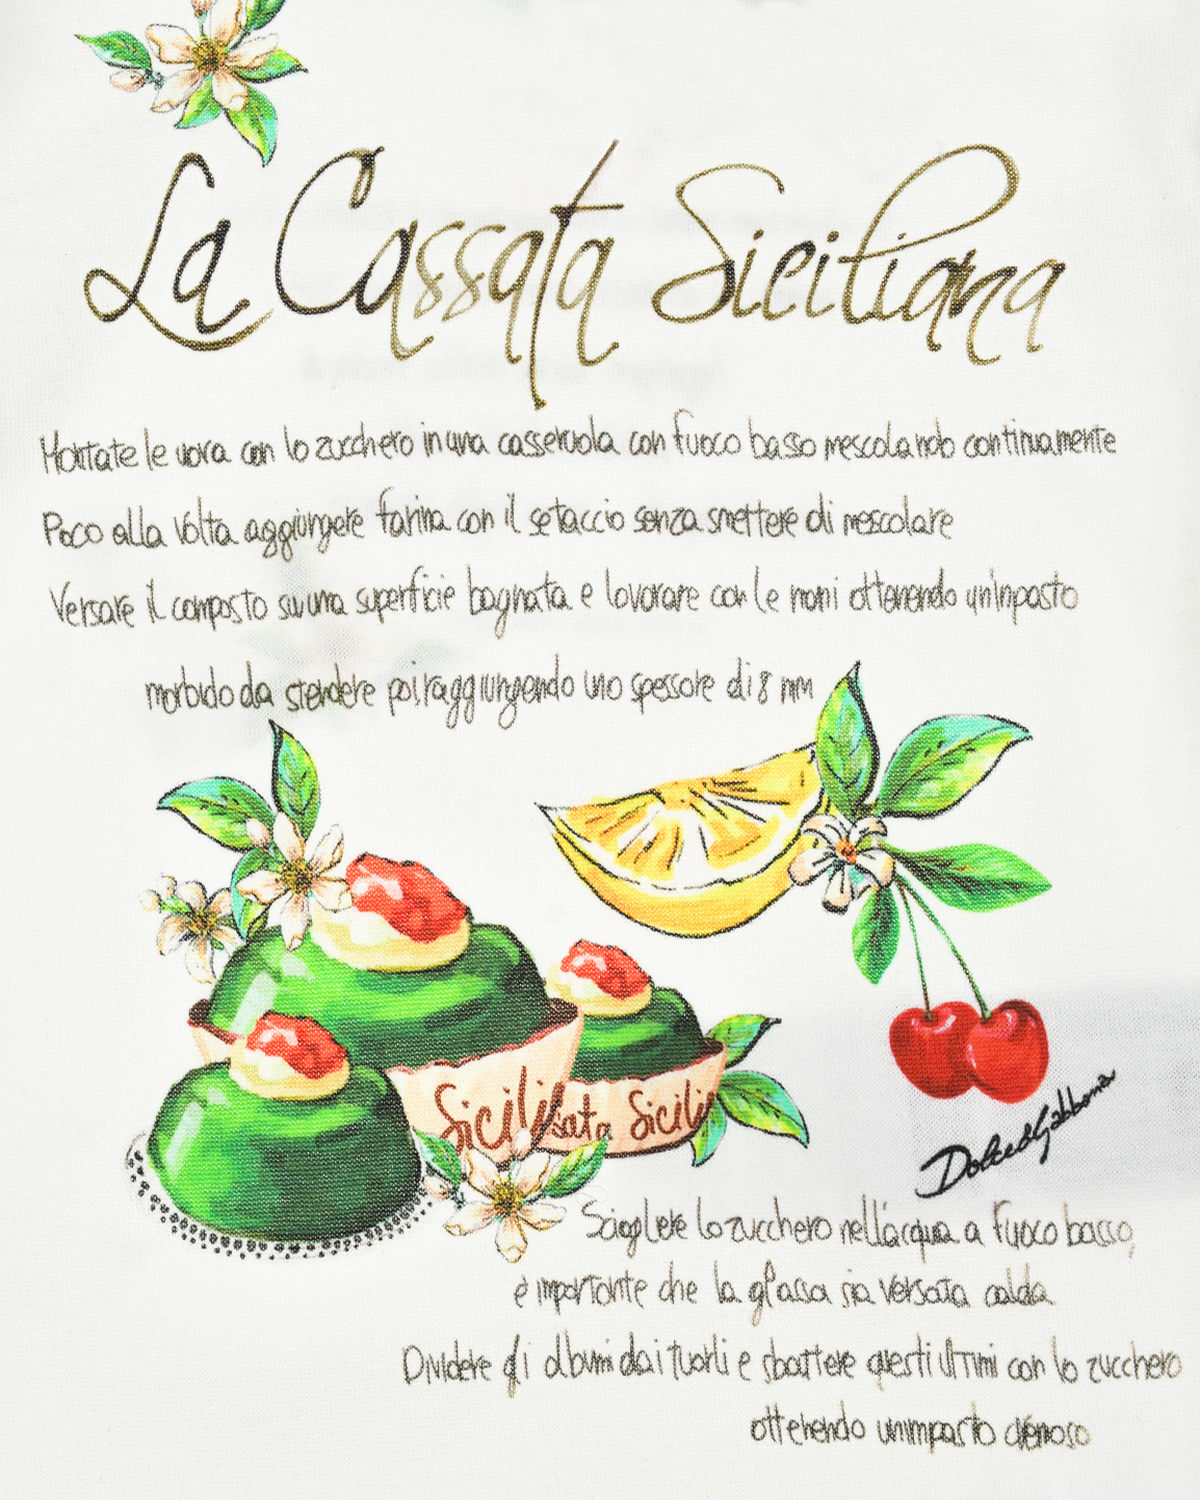 La Cassata Siciliana
Montate le uova con lo zucchero in una casseruola con fuoco basso mescolando continuamente
Poco alla volta aggiungere farina con il setaccio senza smettere di mescolare
Versare il composto su una superficie bagnata e lavorare con le mani ottenendo un'impasto
morbido da stendere poi, raggiungendo uno spessore di 8 mm
Sicilia
sata Sicilia
Dolce&Gabbana
Sciogliere lo zucchero nell'acqua a fuoco basso,
è importante che la glassa sia versata calda
Dividere gli albumi dai tuorli e sbattere questi ultimi con lo zucchero
ottenendo un impasto cremoso